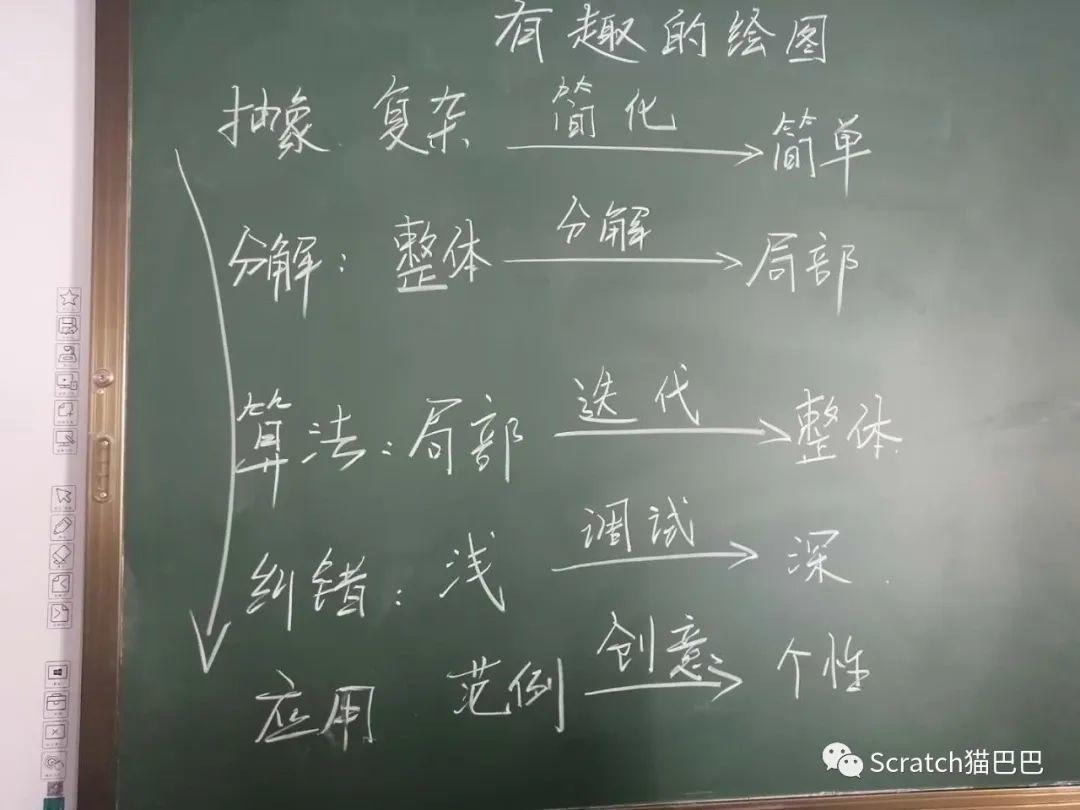 有趣的绘图
抽象. 复杂 简化 简单
分解: 整体 分解 局部
算法: 局部 迭代 整体.
纠错: 浅 调试 深.
应用 范例 创意 个性
Scratch猫巴巴